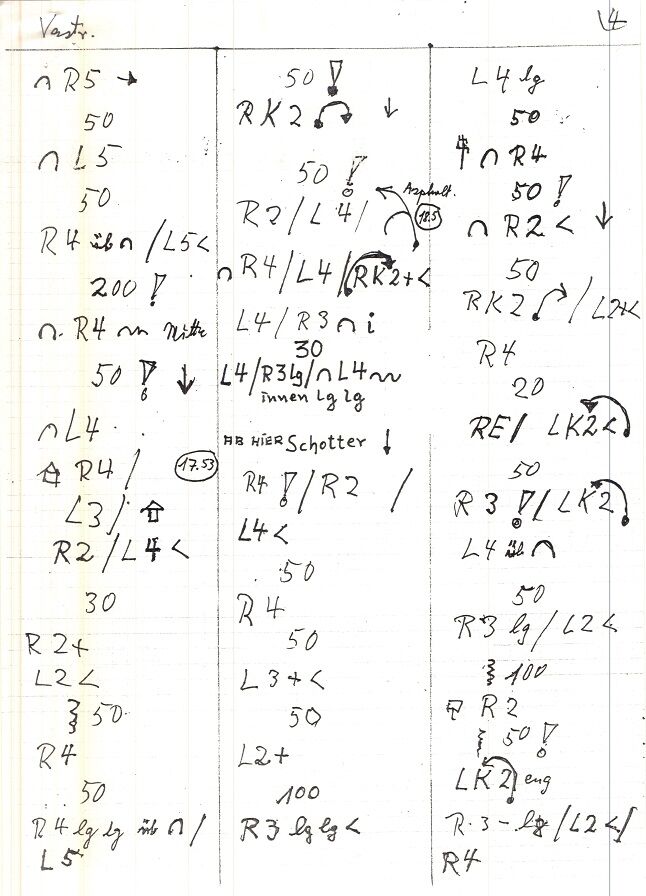 4
∩ R5 →
50
∩ L5
50
R4 üb ∩ / L5 <
200 !
∩ R4 Mitte
50 ! ↓
∩ L4
R4 / 17.53
L3 /
R2 / L4 <
30
R2+
L2 <
50
R4
50
R4 lg lg üb ∩ /
L5
50 !
RK2 ↓
50 ! Asphalt.
R2 / L4 / 18.5
∩ R4 / L4 / RK2+ <
L4 / R3 ∩ i
30
L4 / R3 lg / ∩ L4
innen lg lg
AB HIER Schotter ↓
R4 ! / R2 /
L4 <
50
R4
50
L3+ <
50
L2+
100
R3 lg lg <
L4 lg
50
∩ R4
50 !
∩ R2 < ↓
50
RK2 / L2+<
R4
20
RE / LK2 <
50
R3 ! / LK2
L4 üb ∩
50
R3 lg / L2 <
100
R2
50 !
LK2 eng
R3 - lg / L2 < /
R4